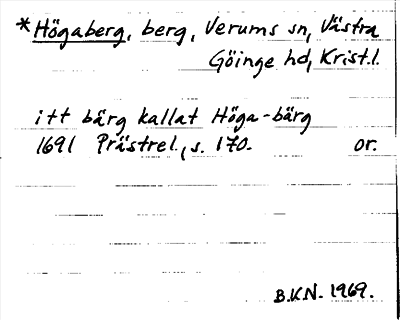 *Högaberg, berg, Verums sn, Västra
Göinge hd, Krist.l.
itt bärg kallat Höga-bärg
1691 Prästrel., s. 170. or.
B.K.N. 1969.